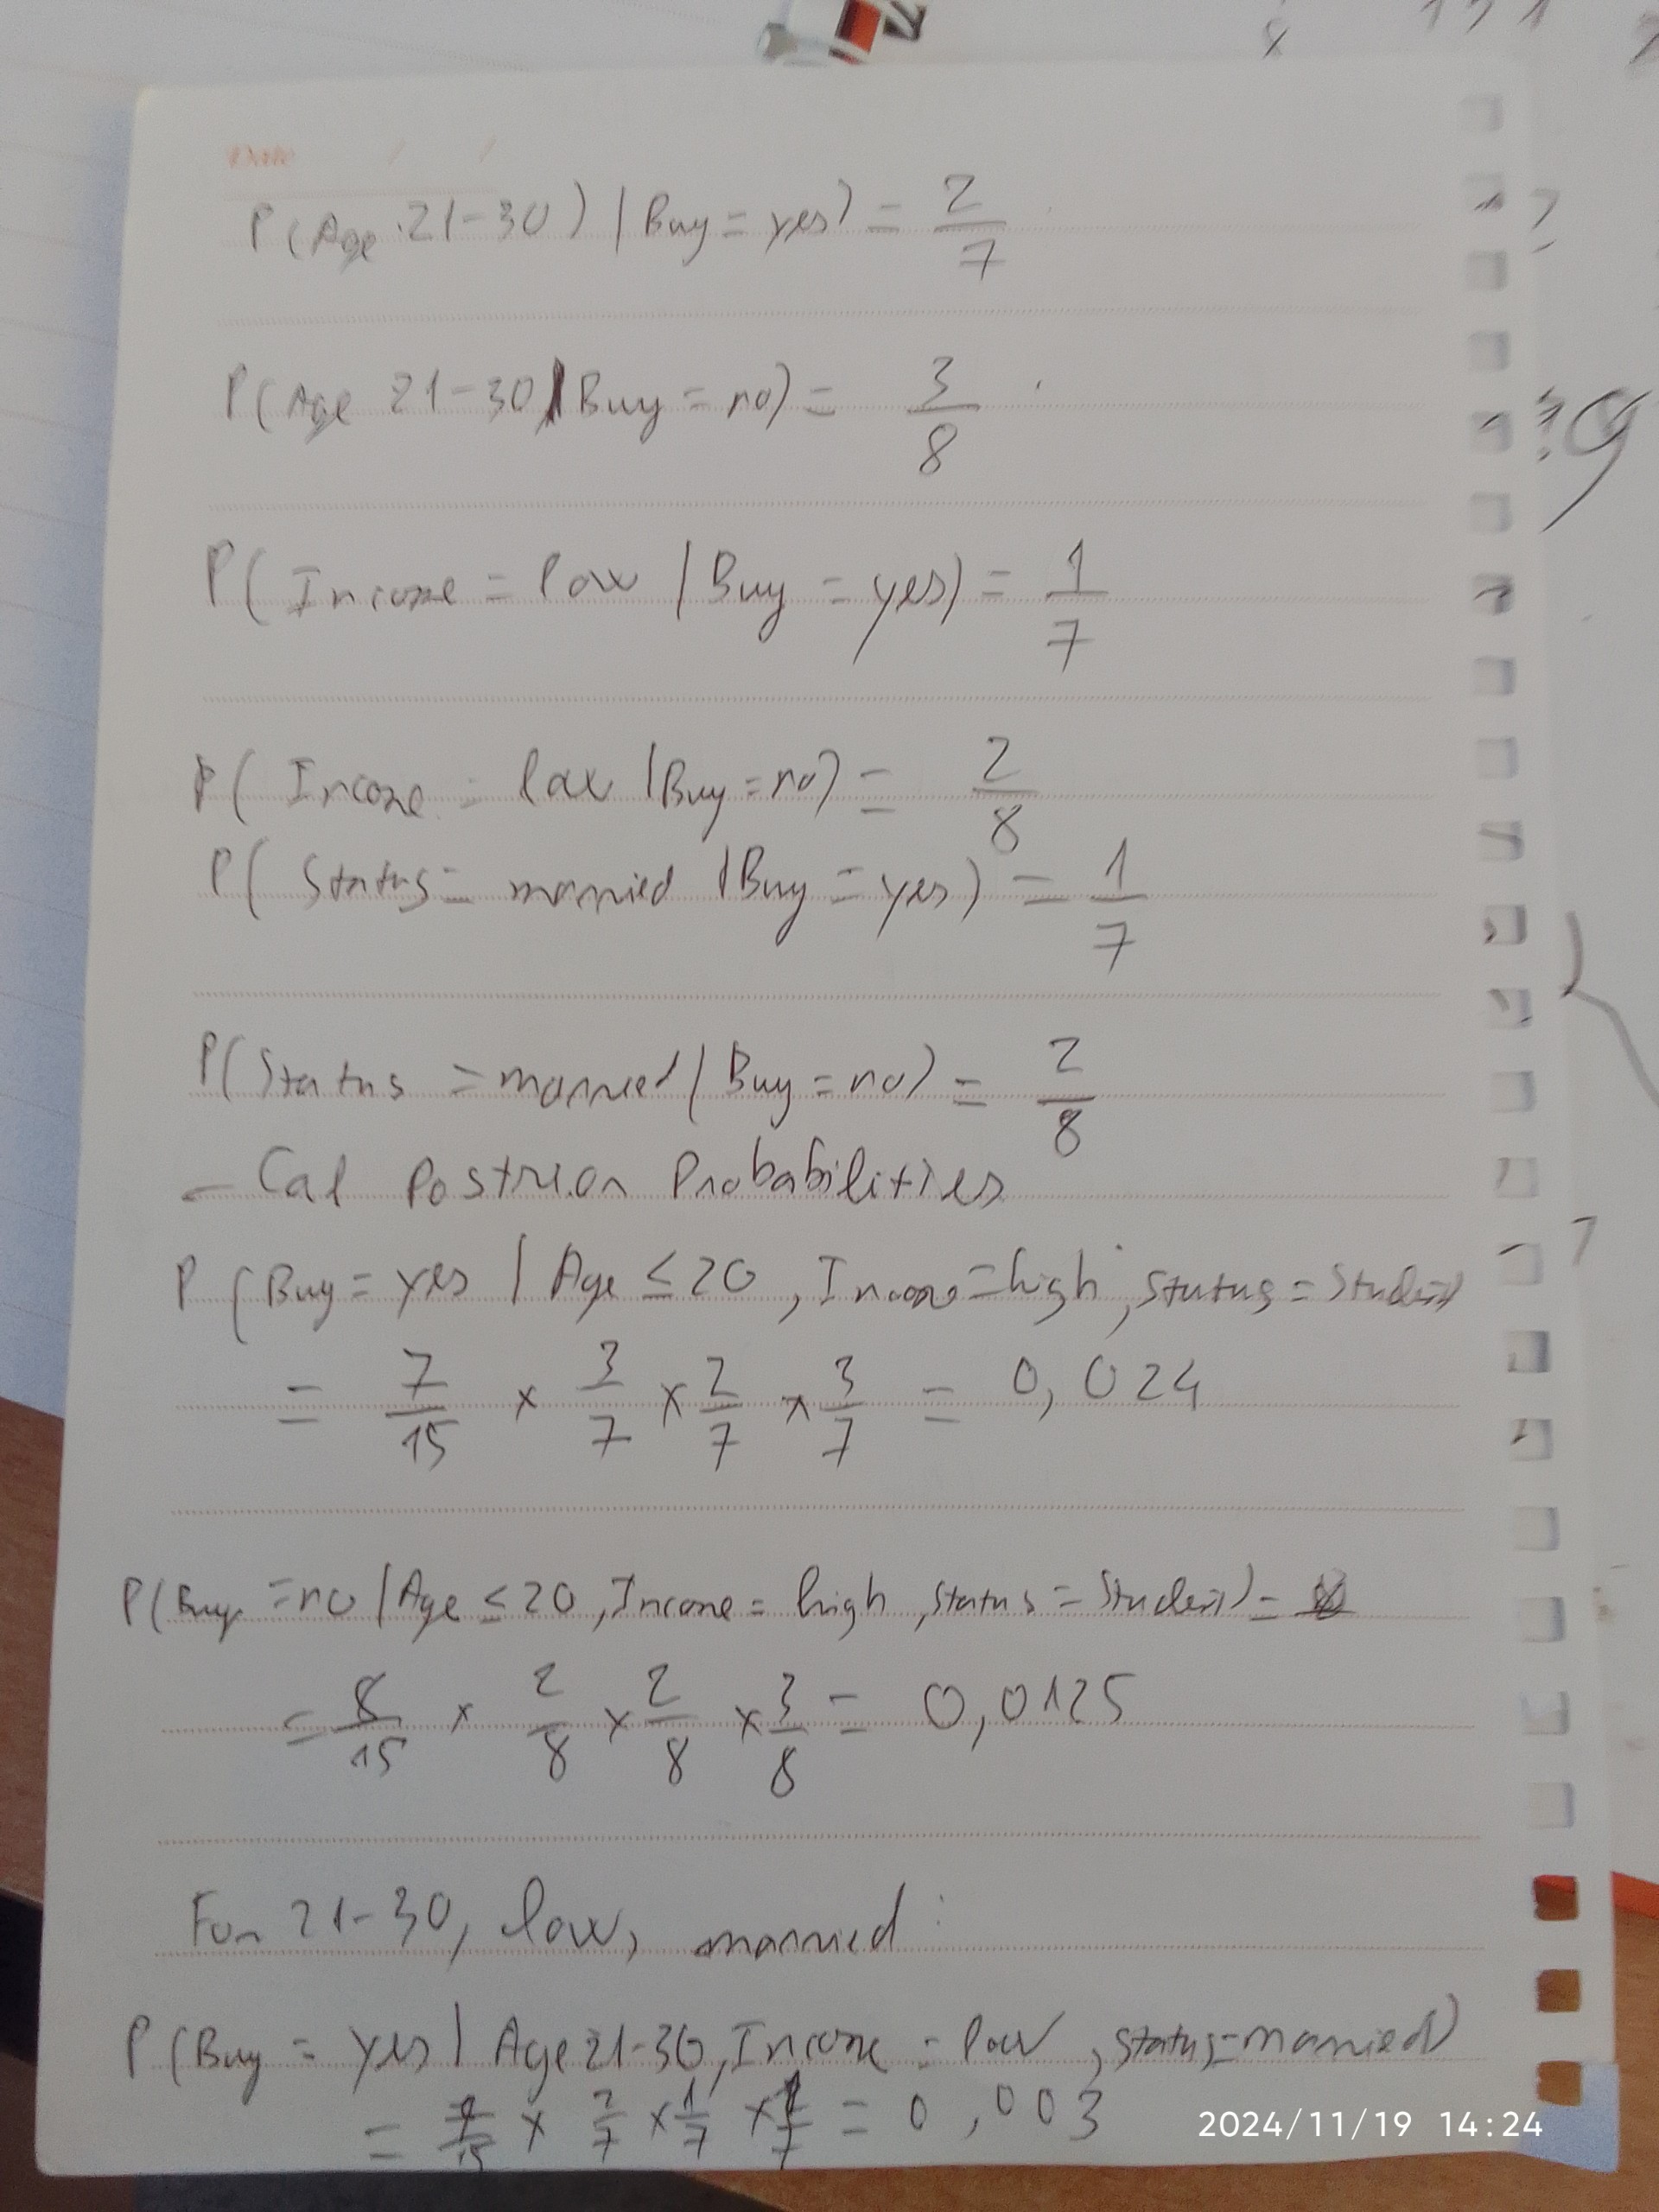 Date / /
P(Age 21-30) | Buy = yes) = 2/7
P(Age 21-30 | Buy = no) = 3/8
P(Income = low | Buy = yes) = 1/7
P(Income = low | Buy = no) = 2/8
P(Status = married | Buy = yes) = 1/7
P(Status = married | Buy = no) = 2/8
- Cal Postrior Probabilities
P(Buy = yes | Age ≤ 20, Income = high, Status = Student)
= 7/15 × 3/7 × 2/7 × 3/7 = 0,024
P(Buy = no | Age ≤ 20, Income = high, Status = Student) =
= 8/15 × 2/8 × 2/8 × 3/8 = 0,0125
For 21-30, low, married:
P(Buy = yes | Age 21-30, Income = low, Status = married)
= 7/15 × 2/7 × 1/7 × 1/7 = 0,003
2024/11/19 14:24